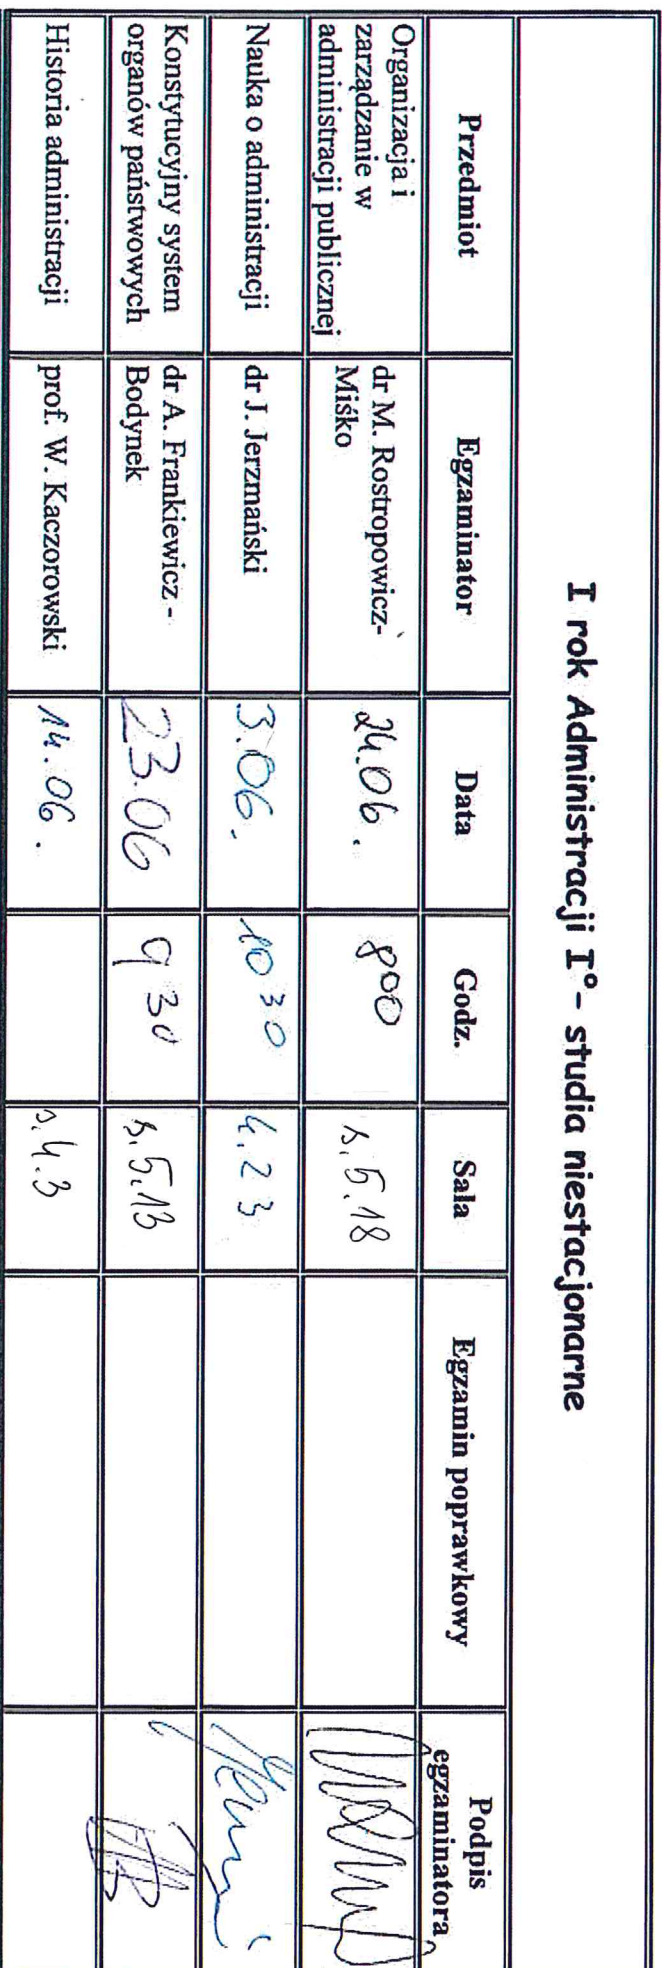 I rok Administracji I°- studia niestacjonarne
Przedmiot
Egzaminator
Data
Godz.
Sala
Egzamin poprawkowy
Podpis
egzaminatora
Organizacja i
zarządzanie w
administracji publicznej
dr M. Rostropowicz-
Miśko
24.06.
8⁰⁰
s.5.18
Nauka o administracji
dr J. Jerzmański
3.06.
10 30
4.23
Konstytucyjny system
organów państwowych
dr A. Frankiewicz -
Bodynek
23.06
9 30
s.5.13
Historia administracji
prof. W. Kaczorowski
14.06.
s.4.3